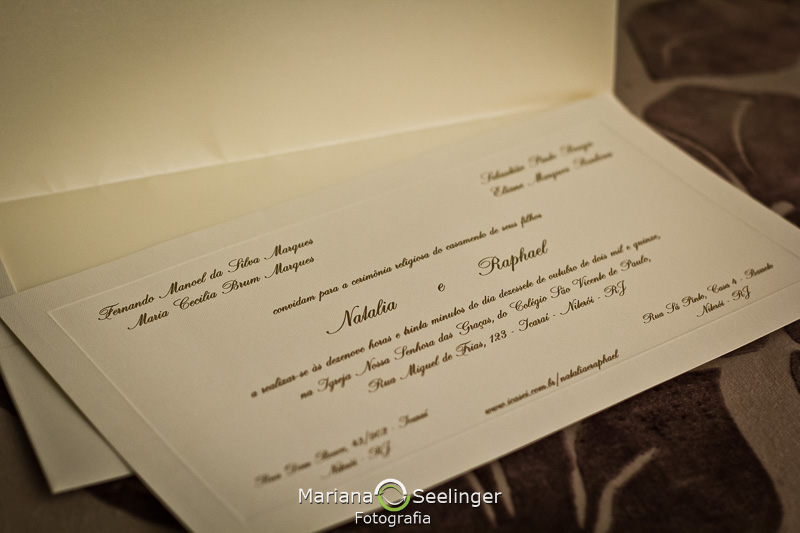 Fernando Manoel da Silva Marques
Maria Cecilia Brum Marques
Sebastião Paulo
Eliane Marques
convidam para a cerimônia religiosa do casamento de seus filhos
Natalia e Raphael
a realizar-se às dezenove horas e trinta minutos do dia dezessete de outubro de dois mil e quinze,
na Igreja Nossa Senhora das Graças, do Colégio São Vicente de Paulo,
Rua Miguel de Frias, 123 - Icaraí - Niterói - RJ
Rua Dom Bosco, - Icaraí
Niterói - RJ
www.icasei.com.br/nataliaeraphael
Rua Sá Pinto, Casa 4 -
Niterói - RJ
Mariana Seelinger
Fotografia